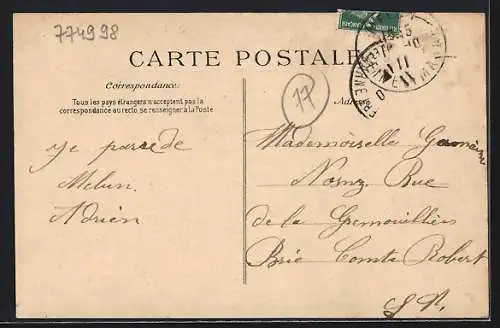 774998
CARTE POSTALE
Correspondance:
Tous les pays étrangers n'acceptent pas la
correspondance au recto, se renseigner à la Poste
77
Adresse
je passe de
Melun.
Adrien
Mademoiselle Germaine
Rue
de la Grenouillère
Brie Comte Robert